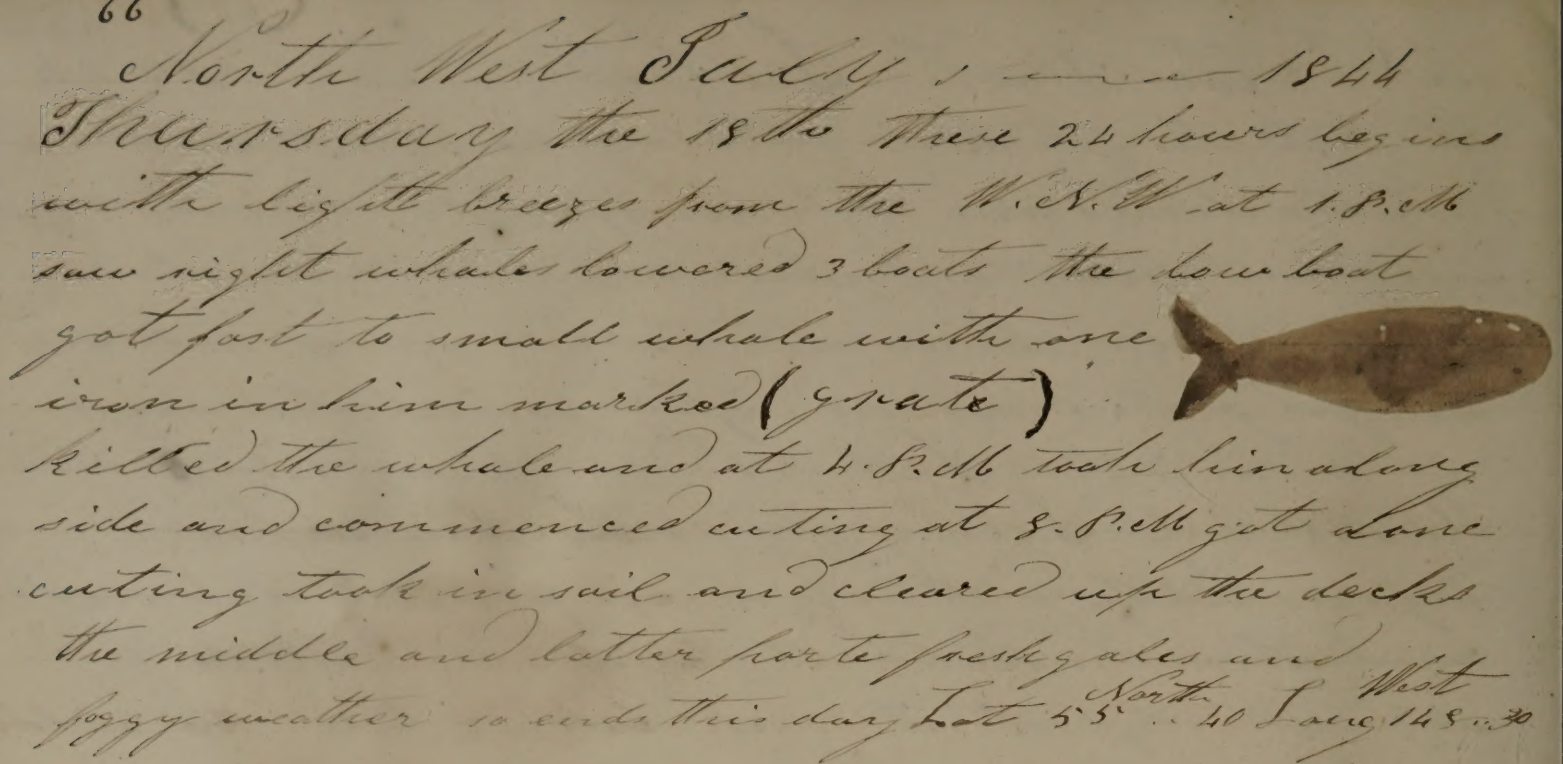 66
North West July 1844
Thursday the 18th these 24 hours begins
with light breezes from the W.N.W at 1.P.M
saw right whales lowered 3 boats the bow boat
got fast to small whale with one
iron in him marked (grate)
killed the whale and at 4.P.M took him along
side and commenced cuting at 8.P.M got done
cuting took in sail and cleared up the decks
the middle and latter parte fresh gales and
foggy weather so ends this day Lat 55 North .. 40 Long 148 West .. 30